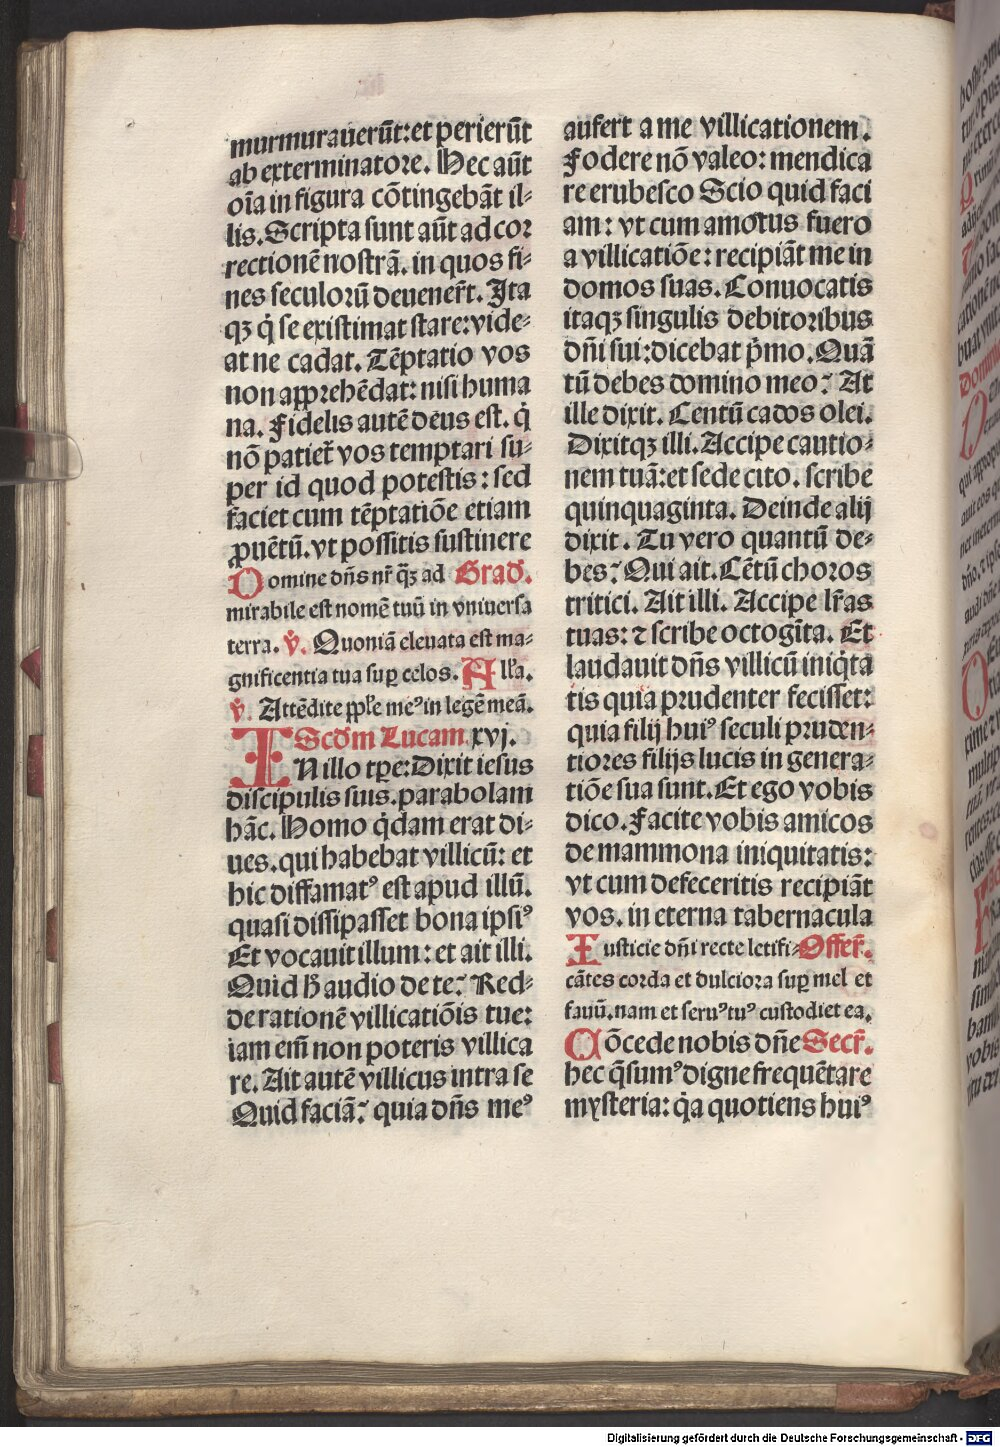 murmurauerūt: et perierūt
ab exterminatore. Hec aūt
oīa in figura cōtingebāt il⸗
lis. Scripta sunt aūt ad cor
rectionē nostrā. in quos fi⸗
nes seculorū deuener̄t. Ita
qꝫ q̇ se existimat stare: vide⸗
at ne cadat. Tēptatio vos
non apprehēdat: nisi huma
na. Fidelis autē deus est. q̇
nō patiet᷑ vos temptari su⸗
per id quod potestis: sed
faciet cum tēptatiōe etiam
ꝓuētū. vt possitis sustinere
Domine dn̄s nr̄ q̄ꝫ ad Grad̄.
mirabile est nomē tuū in vniuersa
terra. v̄. Quoniā eleuata est ma⸗
gnificentia tua suꝑ celos. All'a.
v̄. Attēdite ppl'e meꝰ in legē meā.
Scd̄m Lucam. xvj.
IN illo tꝑe: Dixit iesus
discipulis suis. parabolam
hāc. Homo q̇dam erat di⸗
ues. qui habebat villicū: et
hic diffamatꝰ est apud illū.
quasi dissipasset bona ipsiꝰ
Et vocauit illum: et ait illi.
Quid h̄ audio de te? Red⸗
de rationē villicatiōis tue:
iam em̄ non poteris villica
re. Ait autē villicus intra se
Quid faciā? quia dn̄s meꝰ
aufert a me villicationem.
Fodere nō valeo: mendica
re erubesco Scio quid faci
am: vt cum amotus fuero
a villicatiōe: recipiāt me in
domos suas. Conuocatis
itaqꝫ singulis debitoribus
dn̄i sui: dicebat p̄mo. Quā
tū debes domino meo? At
ille dixit. Centū cados olei.
Dixitqꝫ illi. Accipe cautio⸗
nem tuā: et sede cito. scribe
quinquaginta. Deinde alij
dixit. Tu vero quantū de⸗
bes? Qui ait. Cētū choros
tritici. Ait illi. Accipe lr̄as
tuas: ⁊ scribe octogīta. Et
laudauit dn̄s villicū iniq̇ta
tis quia prudenter fecisset:
quia filij huiꝰ seculi pruden⸗
tiores filijs lucis in genera⸗
tiōe sua sunt. Et ego vobis
dico. Facite vobis amicos
de mammona iniquitatis:
vt cum defeceritis recipiāt
vos. in eterna tabernacula
Iusticie dn̄i recte letifi⸗ Offer̄.
cātes corda et dulciora suꝑ mel et
fauū. nam et seruꝰ tuꝰ custodiet ea.
Cōcede nobis dn̄e Secr̄.
hec q̄sumꝰ digne frequētare
mysteria: q̇a quotiens huiꝰ
Digitalisierung gefördert durch die Deutsche Forschungsgemeinschaft - DFG